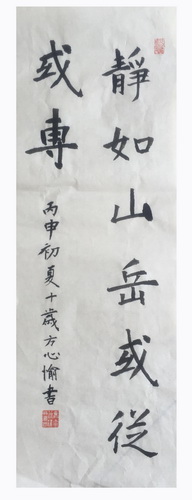 靜如山岳或從
或專
丙申初夏十歲方心愉書